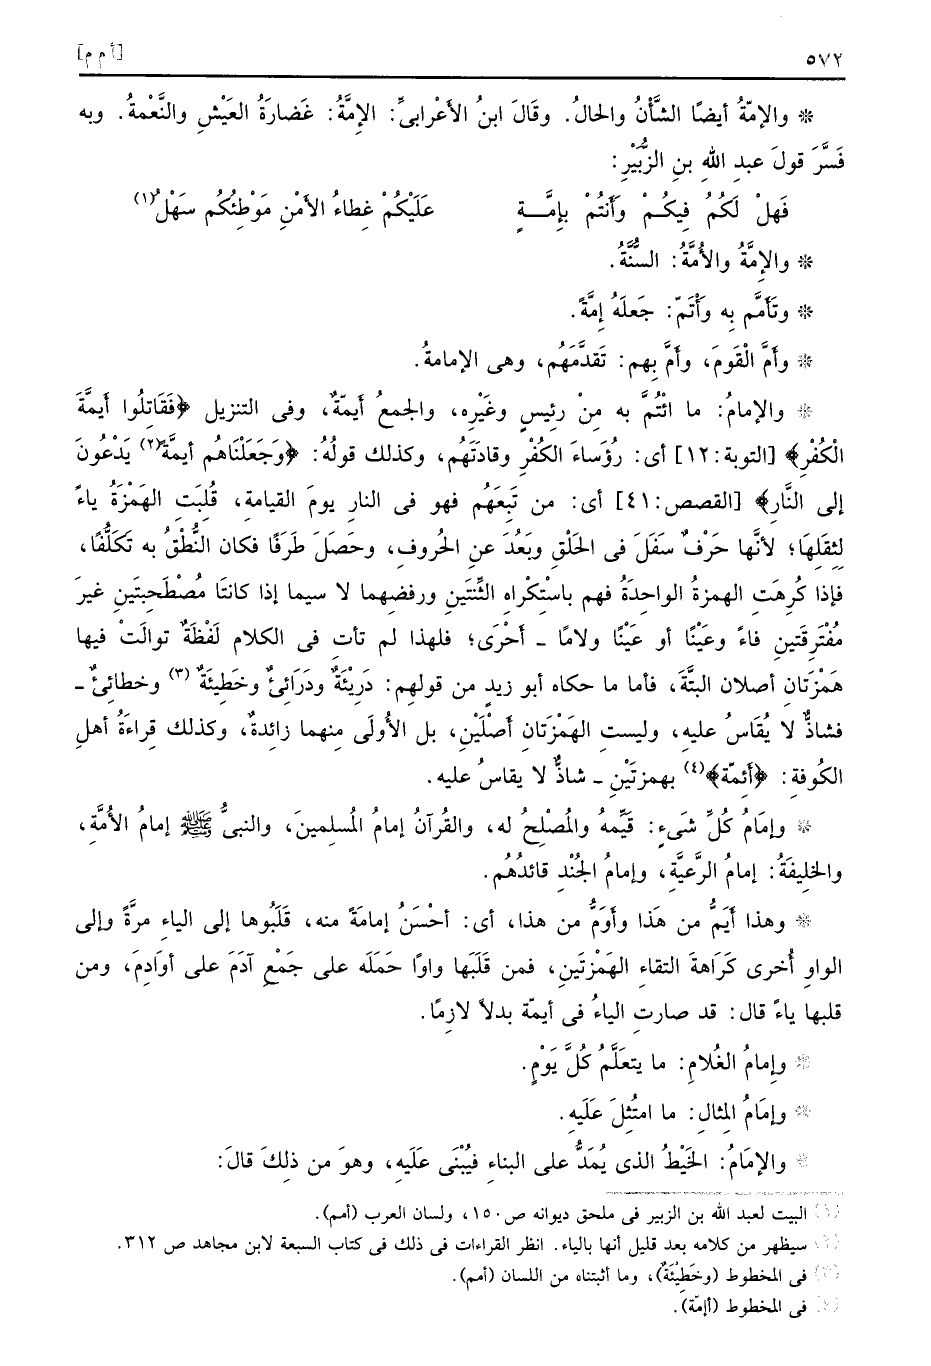 ٥٧٢ [أ م م]
* والإمّةُ أيضًا الشَّأْنُ والحالُ. وقَالَ ابنُ الأعْرابىِّ: الإمَّةُ: غَضارَةُ العَيْشِ والنَّعْمةُ. وبه
فَسَّرَ قولَ عبد اللهِ بنِ الزُّبَيْرِ:
فَهلْ لَكُمُ فيكُـمْ وأَنتُمْ بإمَّـــةٍ عَلَيْكُمْ غِطاءُ الأمْنِ مَوْطِئُكُم سَهْلُ(١)
* والإمَّةُ والأُمَّةُ: السُّنَّةُ.
* وتَأمَّم بِه وأْتَمّ: جَعلَهُ إمَّةً.
* وأمَّ الْقَومَ، وأمَّ بِهم: تَقدَّمَهُم، وهى الإمامةُ.
* والإمامُ: ما ائْتُمَّ به مِنْ رئيسٍ وغَيْرِه، والجمعُ أيَمّةٌ، وفى التنزيل ﴿فَقَاتِلُوا أيمَّةَ
الْكُفْرِ﴾ [التوبة:١٢] أى: رُؤَساءَ الكُفْرِ وقادَتَهُم، وكذلك قولُهُ: ﴿وَجَعَلْنَاهُم أيمَّةً(٢) يَدْعُونَ
إلى النَّارِ﴾ [القصص:٤١] أى: من تَبِعَهُم فهو فى النارِ يومَ القيامة، قُلِبَتِ الهَمْزَةُ ياءً
لثقَلِهَا؛ لأنَّها حَرْفٌ سَفَلَ فى الحَلْقِ وبَعُدَ عن الحُروف، وحَصَلَ طَرَفًا فكان النُّطْقُ به تكَلُّفًا،
فإذا كُرِهَتِ الهمزةُ الواحِدَةُ فهم باسْتِكْراهِ الثِّنتَينِ ورفضِهما لا سيما إذا كانتَا مُصْطَحِبتَينِ غيرَ
مُفْتَرِقَتينِ فاءً وعَيْنًا أو عَيْنًا ولامًا ـ أحْرَى؛ فلهذا لم تأت فى الكلام لَفْظَةٌ توالَتْ فيها
هَمْزَتان أصلان البتَّةَ، فأما ما حكاه أبو زيدٍ من قولهم: دَرِيئَةٌ ودَرَائِئُ وخَطِيئَةٌ (٣) وخطائِئُ ـ
فشاذٌّ لا يُقَاسُ عليه، وليستِ الهَمْزَتان أصْلَيْنِ، بل الأُولَى منهما زائدةٌ، وكذلك قِراءَةُ أهلِ
الكُوفة: ﴿أَئِمّة﴾(٤) بهمزتَيْنِ ـ شاذٌّ لا يقاسُ عليه.
* وإمَامُ كُلِّ شَىءٍ: قَيِّمُهُ والمُصْلِحُ له، والقُرآنُ إمامُ المُسلمينَ، والنبىُّ ﷺ إمامُ الأمَّة،
والخليفَةُ: إمامُ الرَّعيَّةِ، وإمامُ الجُنْدِ قائدُهُم.
* وهذا أيَمُّ من هَذا وأوَمُّ من هذا، أى: أحْسَنُ إمامَةً منه، قَلَبُوها إلى الياءِ مرَّةً وإلى
الواوِ أُخرى كَرَاهةَ التقاءِ الهَمْزَتَينِ، فمن قَلَبَها واوًا حَمَلَه على جَمْعِ آدَمَ على أوَادِمَ، ومن
قلبها ياءً قال: قد صارتِ الياءُ فى أيمّة بدلاً لازِمًا.
* وإمامُ الغُلامِ: ما يتعَلَّمُ كُلَّ يَوْمٍ.
* وإمَامُ المِثالِ: ما امتُثِلَ عَلَيه.
* والإمَامُ: الخَيْطُ الذى يُمَدُّ على البناءِ فيُبْنَى عَلَيهِ، وهوَ من ذلِكَ قالَ:
(١) البيت لعبد الله بن الزبير فى ملحق ديوانه ص١٥٠، ولسان العرب (أمم).
(٢) سيظهر من كلامه بعد قليل أنها بالياء. انظر القراءات فى ذلك فى كتاب السبعة لابن مجاهد ص ٣١٢.
(٣) فى المخطوط (وخَطِيْئَةٌ)، وما أثبتناه من اللسان (أمم).
(٤) فى المخطوط (أإمّة).